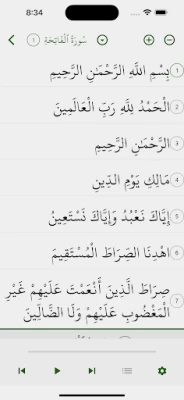 8:34
سُورَةُ ٱلْفَاتِحَةِ ١
بِسْمِ اللَّهِ الرَّحْمَٰنِ الرَّحِيمِ ١
الْحَمْدُ لِلَّهِ رَبِّ الْعَالَمِينَ ٢
الرَّحْمَٰنِ الرَّحِيمِ ٣
مَالِكِ يَوْمِ الدِّينِ ٤
إِيَّاكَ نَعْبُدُ وَإِيَّاكَ نَسْتَعِينُ ٥
اهْدِنَا الصِّرَاطَ الْمُسْتَقِيمَ ٦
صِرَاطَ الَّذِينَ أَنْعَمْتَ عَلَيْهِمْ غَيْرِ ٧
الْمَغْضُوبِ عَلَيْهِمْ وَلَا الضَّالِّينَ